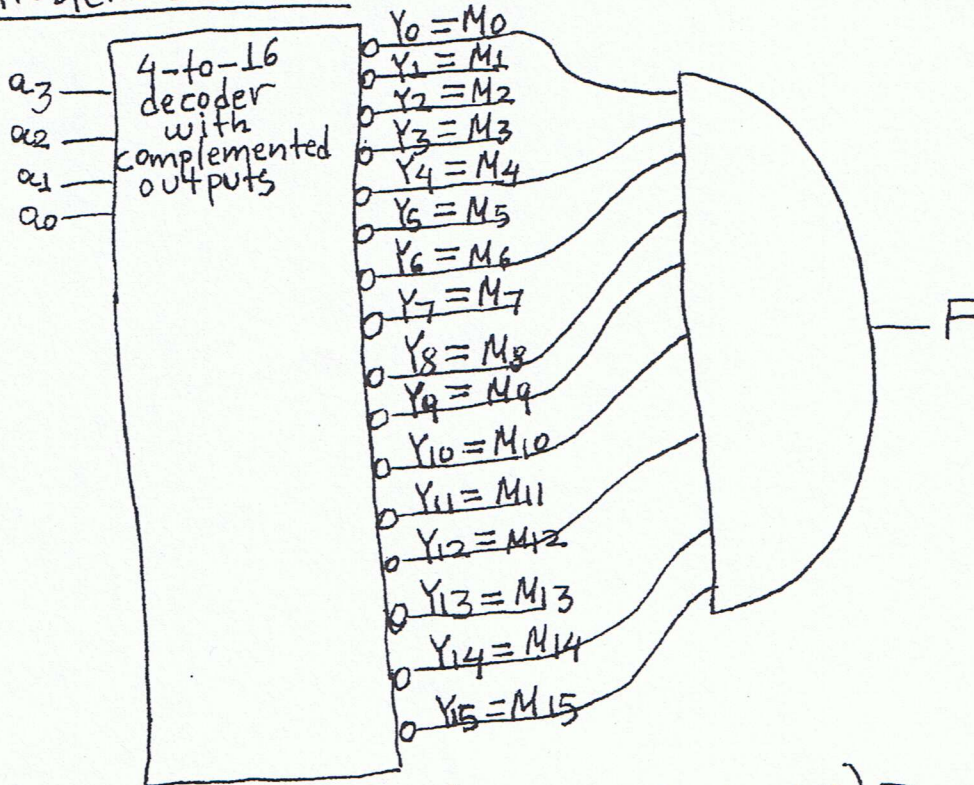 4-to-16
decoder
with
complemented
outputs
a3
a2
a1
a0
Y0 = M0
Y1 = M1
Y2 = M2
Y3 = M3
Y4 = M4
Y5 = M5
Y6 = M6
Y7 = M7
Y8 = M8
Y9 = M9
Y10 = M10
Y11 = M11
Y12 = M12
Y13 = M13
Y14 = M14
Y15 = M15
F